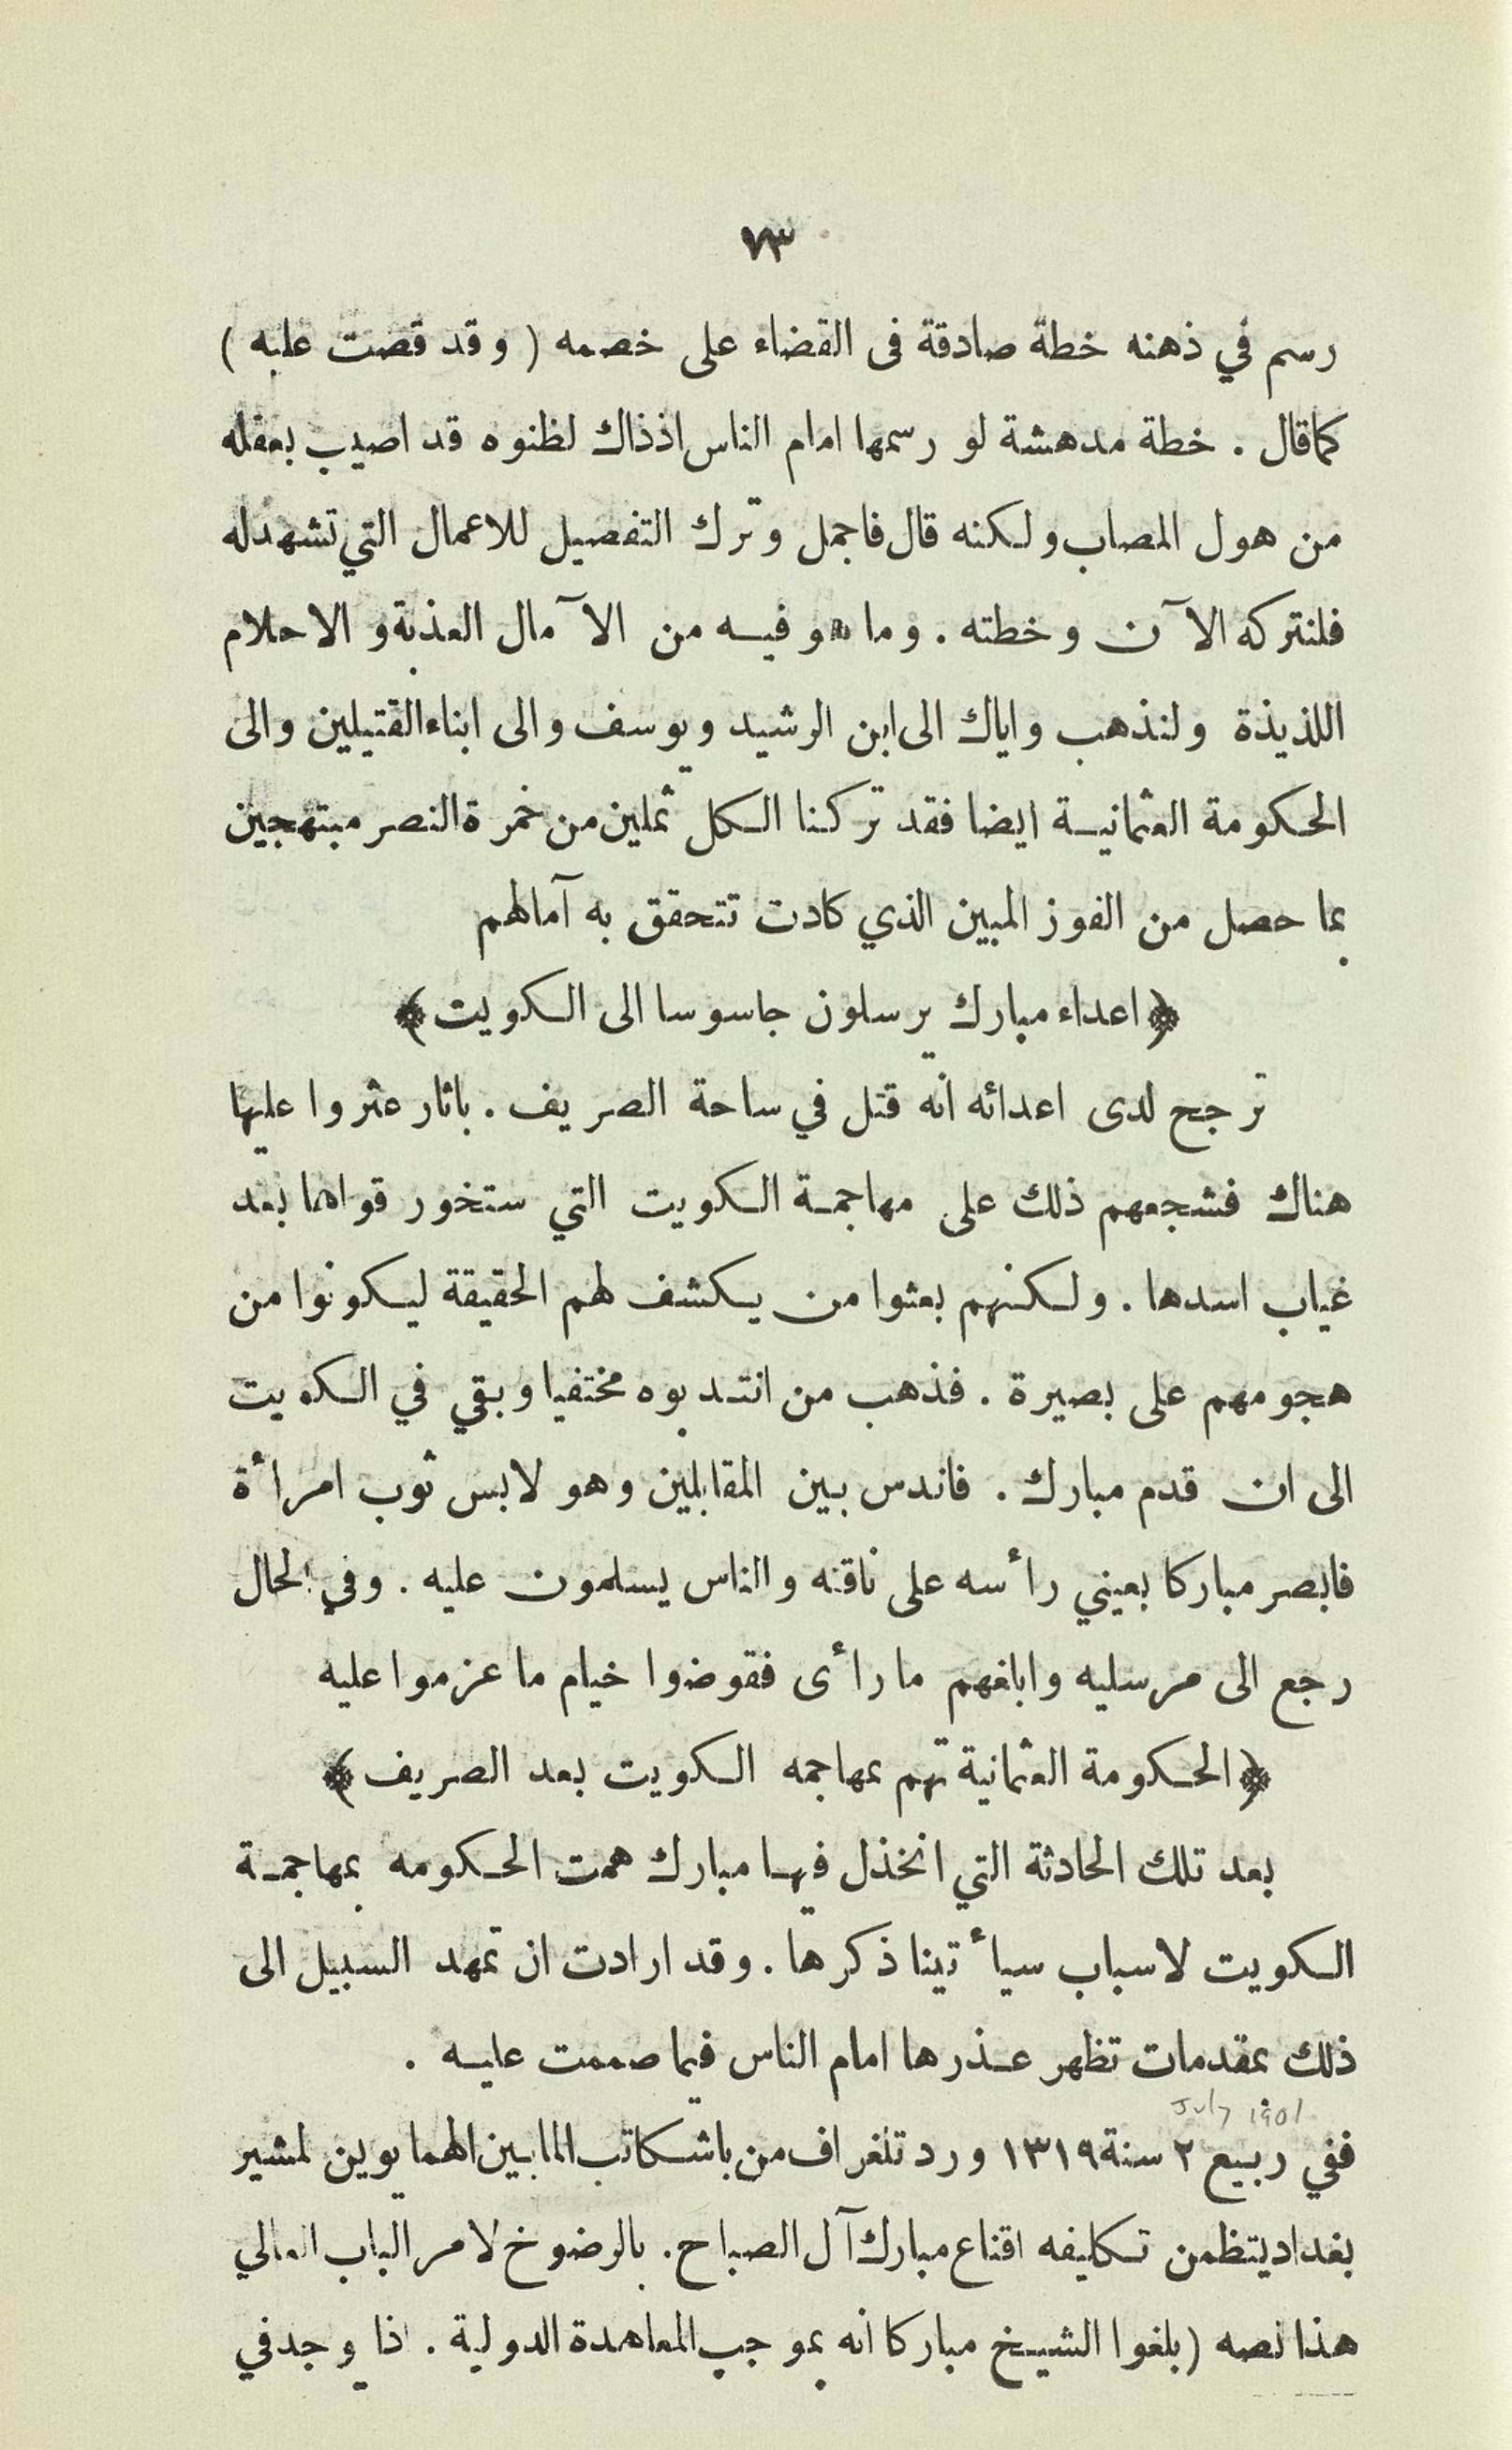 ٧٣
رسم في ذهنه خطة صادقة فى القضاء على خصمه ( وقد قصت عليه )
كما قال . خطة مدهشة لو رسمها امام الناس اذذاك لظنوه قد اصيب بعقله
من هول المصاب ولكنه قال فاجمل وترك التفصيل للاعمال التي تشهد له
فلنتركه الآن وخطته . وما هو فيه من الآمال العذبة و الاحلام
اللذيذة ولنذهب واياك الى ابن الرشيد ويوسف والى ابناء القتيلين والى
الحكومة العثمانية ايضا فقد تركنا الكل ثملين من خمرة النصر مبتهجين
بما حصل من الفوز المبين الذي كادت تتحقق به آمالهم
﴿ اعداء مبارك يرسلون جاسوسا الى الكويت ﴾
ترجح لدى اعدائه انه قتل في ساحة الصريف . باثار عثروا عليها
هناك فشجعهم ذلك على مهاجمة الكويت التي ستخور قواها بعد
غياب اسدها . ولكنهم بعثوا من يكشف لهم الحقيقة ليكونوا من
هجومهم على بصيرة . فذهب من انتدبوه مختفيا وبقي في الكويت
الى ان قدم مبارك . فاندس بين المقابلين وهو لابس ثوب امرأة
فابصر مباركا بعيني رأسه على ناقته والناس يسلمون عليه . وفي الحال
رجع الى مرسليه وابلغهم ما رأى فقوضوا خيام ما عزموا عليه
﴿ الحكومة العثمانية تهم بمهاجمه الكويت بعد الصريف ﴾
بعد تلك الحادثة التي انخذل فيها مبارك همت الحكومه بمهاجمة
الكويت لاسباب سيأتينا ذكرها . وقد ارادت ان تمهد السبيل الى
ذلك بمقدمات تظهر عذرها امام الناس فيما صممت عليه .
July 1901
ففي ربيع ٢ سنة ١٣١٩ ورد تلغراف من باشكاتب المابين الهمايوين لمشير
بغداد يتظمن تكليفه اقناع مبارك آل الصباح . بالرضوخ لامر الباب العالي
هذا نصه ( بلغوا الشيخ مباركا انه بموجب المعاهدة الدولية . اذا وجد في